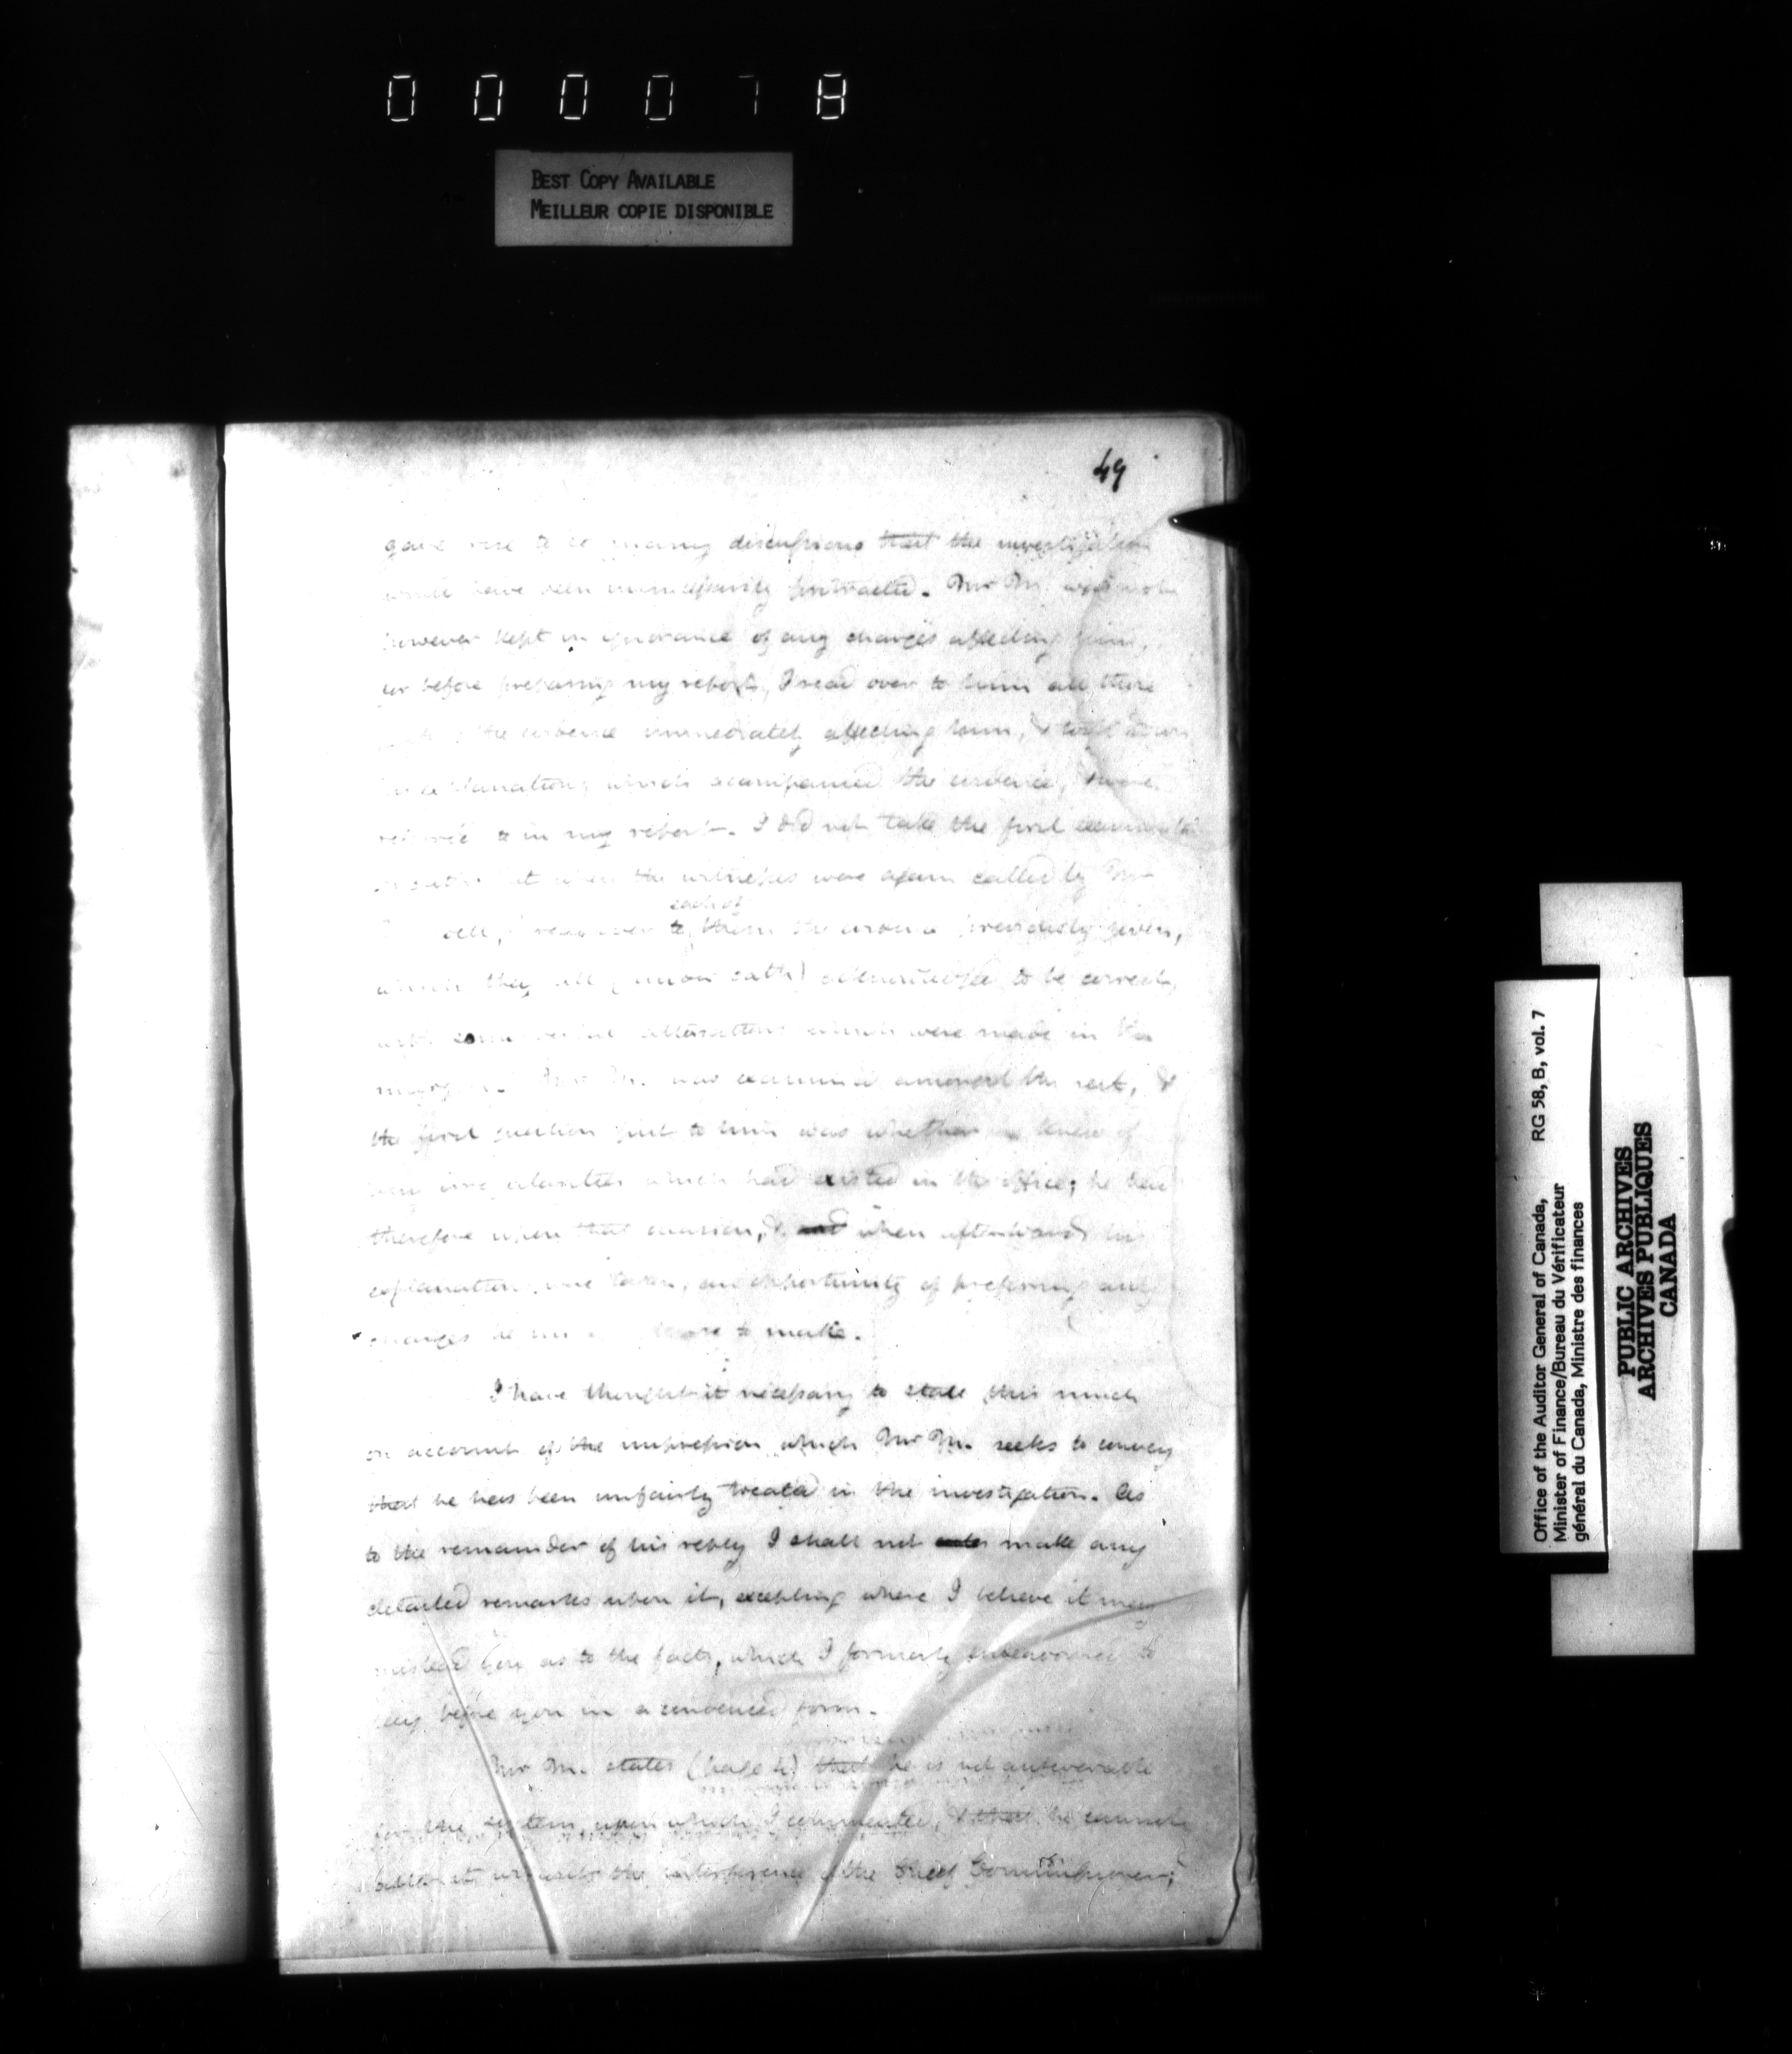 000078
BEST COPY AVAILABLE
MEILLEUR COPIE DISPONIBLE
49
gave rise to so many discussions that the investigation
would have been unnecessarily protracted. Mr M. was not
however kept in ignorance of any charges affecting him,
for before preparing my report, I read over to him all those
the evidence immediately affecting him, & took down
his explanations which accompanied the evidence, & were
referred to in my report. I did not take the first examination
on oath but when the witnesses were again called by Mr
to each of them the evidence previously given,
which they all (upon oath) acknowledged to be correct,
with some verbal alterations which were made in the
margin. Mr M. was examined amongst the rest, &
the first question put to him was whether he knew of
any irregularities which had existed in the office; he had
therefore upon that occasion, & when afterwards his
explanations were taken, an opportunity of preferring any
charges he to make.
I have thought it necessary to state this much
on account of the impression which Mr M. seeks to convey
that he has been unfairly treated in the investigation. As
to the remainder of his reply I shall not make any
detailed remarks upon it, excepting where I believe it may
mislead you as to the facts, which I formerly endeavoured to
lay before you in a condensed form.
Mr M. states (page 4) that he is not answerable
for the system upon which I commented, & that he cannot
alter it without the interference of the Chief Commissioner;
Office of the Auditor General of Canada, RG 58, B, vol. 7
Minister of Finance/Bureau du Vérificateur
général du Canada, Ministre des finances
PUBLIC ARCHIVES
ARCHIVES PUBLIQUES
CANADA